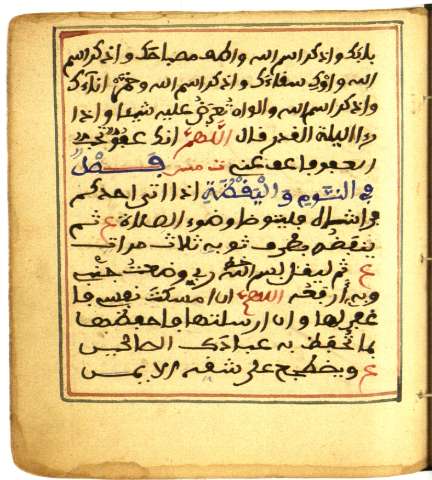 بابك واذكر اسم الله واطف مصباحك واذكر اسم
الله واوك سقاءك واذكر اسم الله وخمر اناءك
واذكر اسم الله ولو ان تعرض عليه شيئا واذا
رءا ليلة القدر قال اللهم انك عفو تحب
العفو فاعف عني ت مس فصل
في النوم واليقظة اذا اتى احدكم
فراشه فليتوضا وضوء الصلاة ع ثم
ينفضه بطرف ثوبه ثلاث مرات
ع ثم ليقل بسم الله ربي وضعت جنبي
وبك ارفعه اللهم ان امسكت نفسي فا
غفر لها وان ارسلتها فاحفظها
بما تحفظ به عبادك الصالحين
ع ويضطجع على شقه الايمن